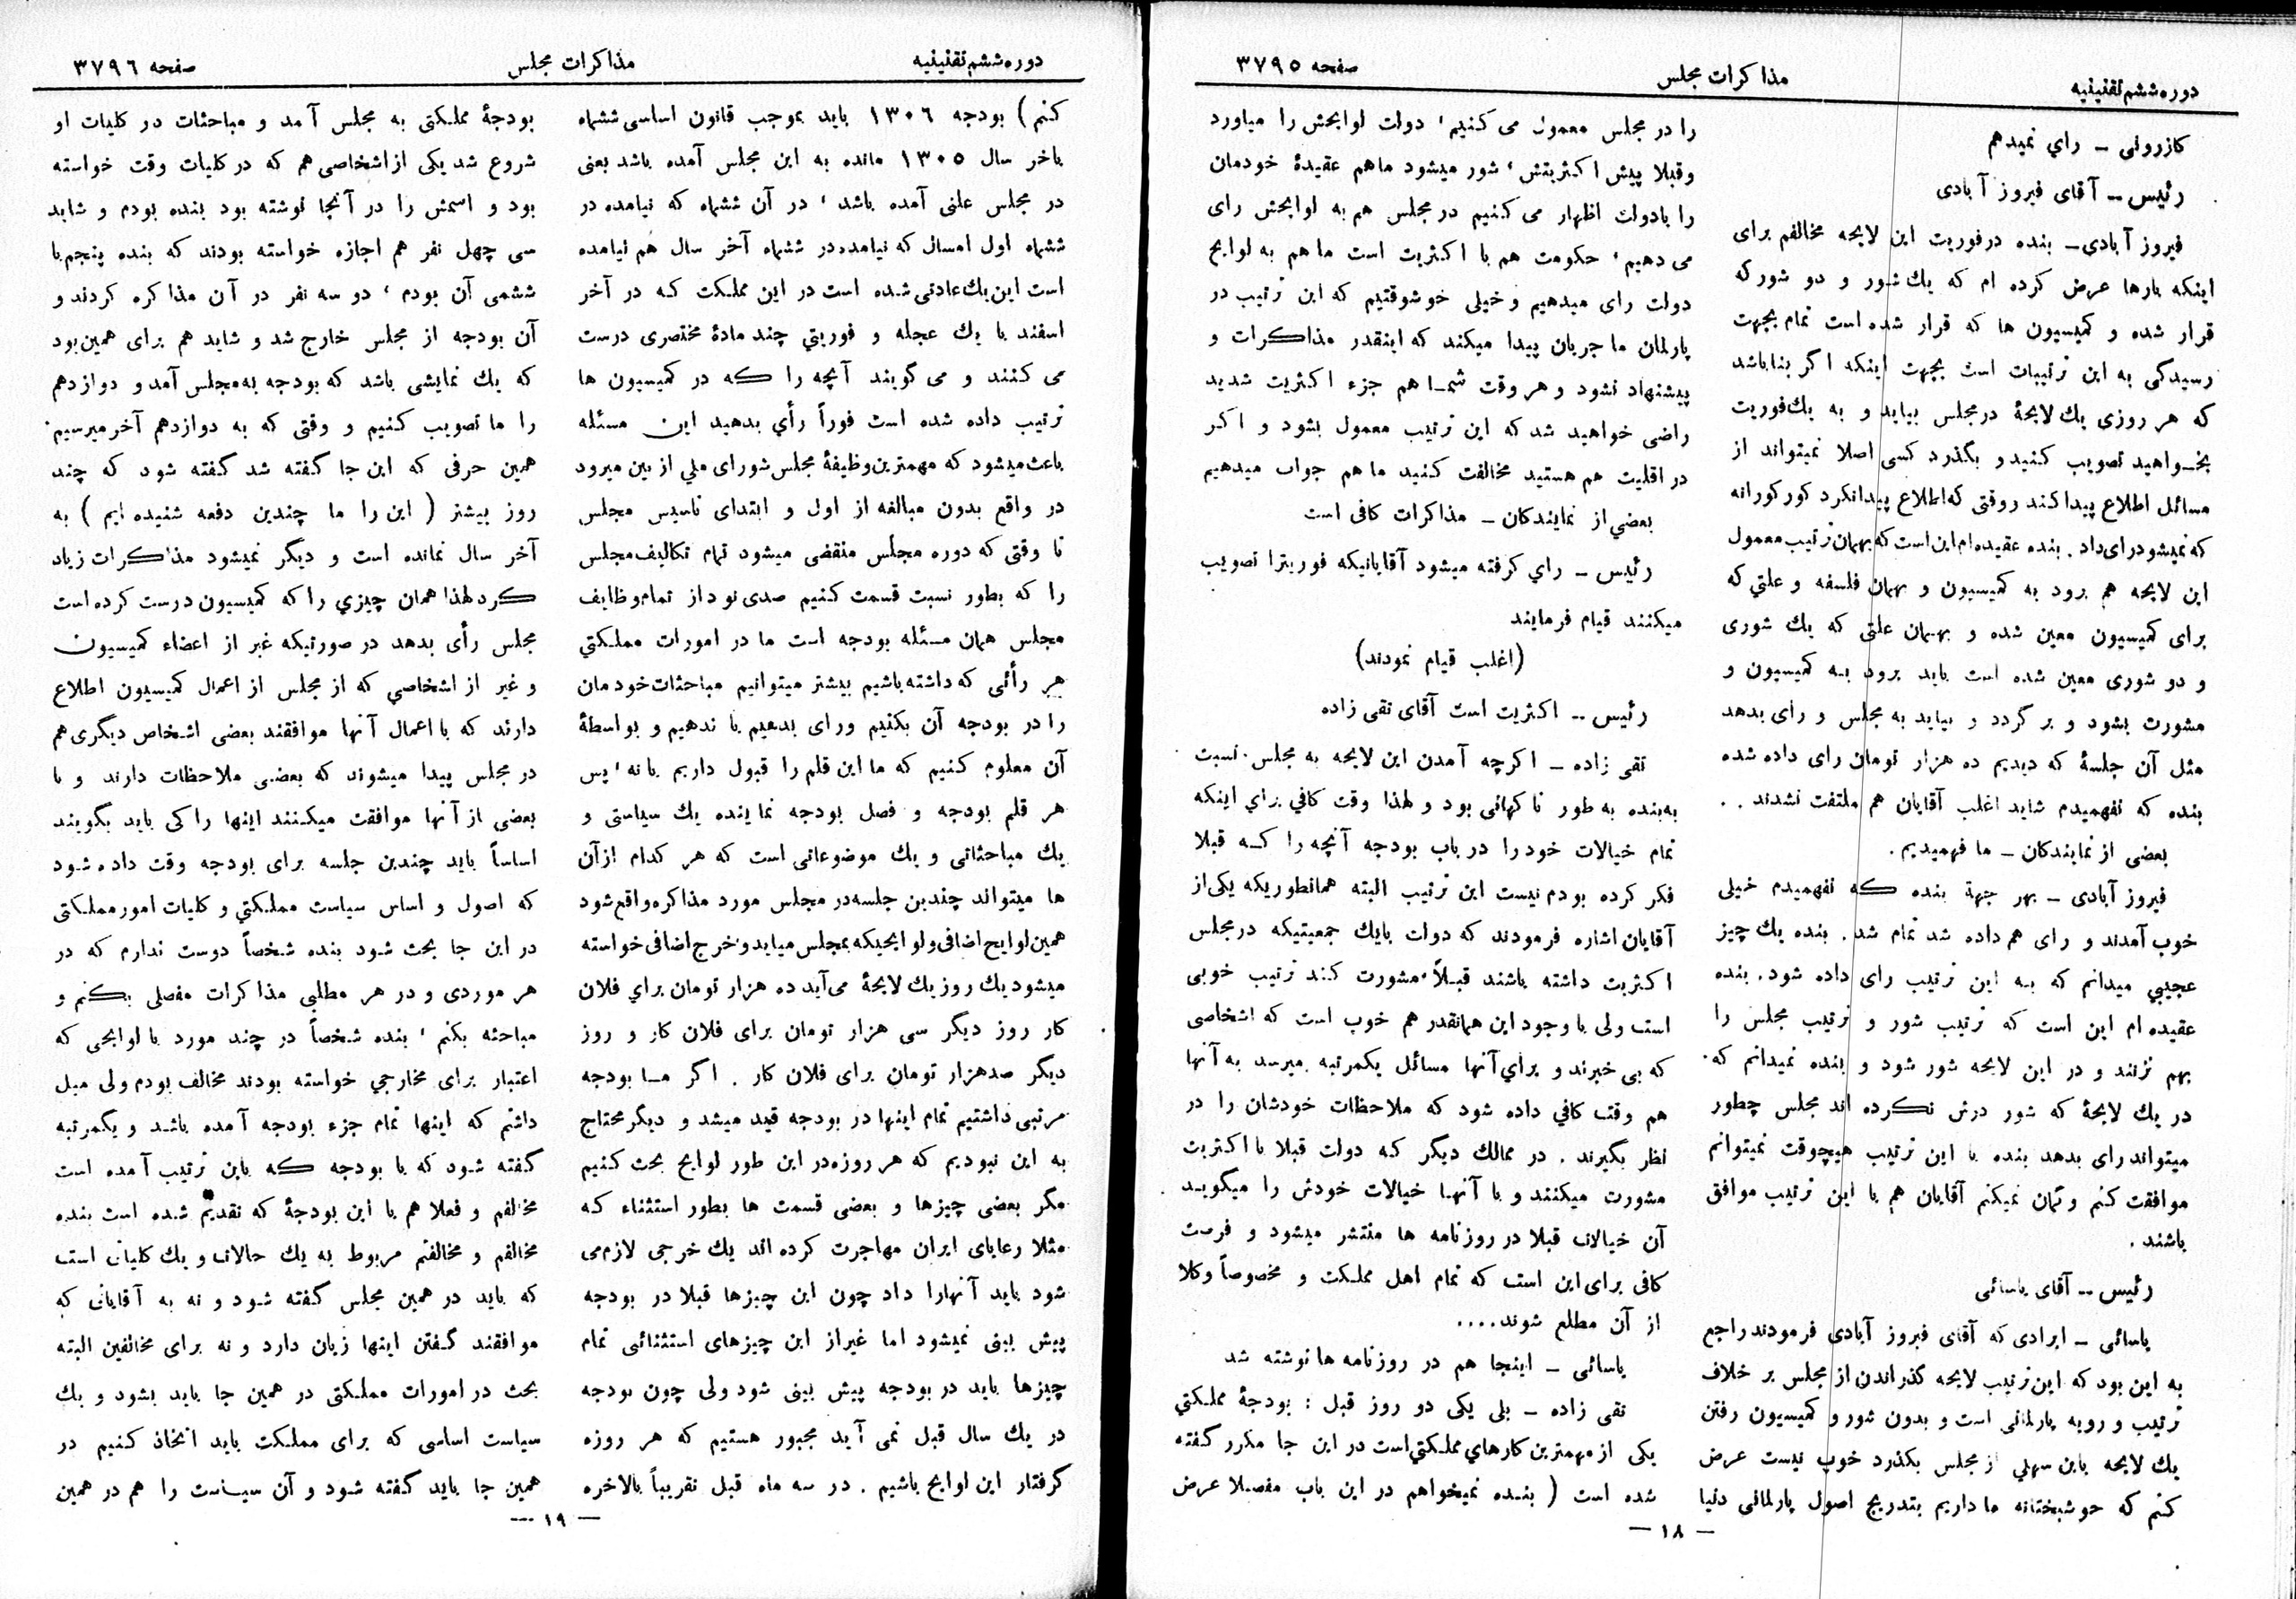 دوره ششم تقنینیه
مذاکرات مجلس
صفحه ۳۷۹۵
کازرونی ــ رأي نمیدهم
رئیس ــ آقای فیروز آبادی
فیروز آبادی ــ بنده درفوریت این لایحه مخالفم برای
اینکه بارها عرض کرده ام که یك شور و دو شور که
قرار شده و کمیسیون ها که قرار شده است تمام بجهت
رسیدگی به این ترتیبات است بجهت اینکه اگر بنا باشد
که هر روزی یك لایحهٔ در مجلس بیاید و به یك فوریت
بخواهید تصویب کنید و بگذرد کسی اصلا نمیتواند از
مسائل اطلاع پیدا کند و وقتی که اطلاع پیدا نکرد کورکورانه
که نمیشود رای داد . بنده عقیده ام این است که بهمان ترتیب معمول
این لایحه هم برود به کمیسیون و بهمان فلسفه و علتي که
برای کمیسیون معین شده و بهمان علتی که یك شوری
و دو شوری معین شده است باید برود به کمیسیون و
مشورت بشود و بر گردد و بیاید به مجلس و رای بدهد
مثل آن جلسهٔ که دیدیم ده هزار تومان رای داده شده
بنده که نفهمیدم شاید اغلب آقایان هم ملتفت نشدند . .
بعضی از نمایندکان ــ ما فهمیدیم .
فیروز آبادی ــ بهر جهة بنده که نفهمیدم خیلی
خوب آمدند و رای هم داده شد تمام شد . بنده یك چیز
عجیبي میدانم که به این ترتیب رای داده شود . بنده
عقیده ام این است که ترتیب شور و ترتیب مجلس را
بهم نزنند و در این لایحه شور شود و بنده نمیدانم که
در یك لایحهٔ که شور درش نکرده اند مجلس چطور
میتواند رای بدهد بنده با این ترتیب هیچوقت نمیتوانم
موافقت کنم و گمان نمیکنم آقایان هم با این ترتیب موافق
باشند .
رئیس ــ آقای یاسائی
یاسائی ــ ایرادی که آقای فیروز آبادی فرمودند راجع
به این بود که این ترتیب لایحه گذراندن از مجلس بر خلاف
ترتیب و رویه پارلمانی است و بدون شور و کمیسیون رفتن
یك لایحه باین سهلي از مجلس بکذرد خوب نیست عرض
کنم که خوشبختانه ما داریم بتدریج اصول پارلمانی دنیا
را در مجلس معمول می کنیم ، دولت لوایحش را میاورد
وقبلا پیش اکثریتش ، شور میشود ما هم عقیدهٔ خودمان
را با دولت اظهار می کنیم در مجلس هم به لوایحش رای
می دهیم ، حکومت هم با اکثریت است ما هم به لوایح
دولت رای میدهیم و خیلی خوشوقتیم که این ترتیب در
پارلمان ما جریان پیدا میکند که اینقدر مذاکرات و
پیشنهاد نشود و هر وقت شما هم جزء اکثریت شدید
راضی خواهید شد که این ترتیب معمول بشود و اکر
در اقلیت هم هستید مخالفت کنید ما هم جواب میدهیم
بعضي از نمایندکان ــ مذاکرات کافی است
رئیس ــ راي کرفته میشود آقایانیکه فوریترا تصویب
میکنند قیام فرمایند
(اغلب قیام نمودند)
رئیس ــ اکثریت است آقای تقی زاده
تقی زاده ــ اکرچه آمدن این لایحه به مجلس نسبت
به بنده به طور ناکهانی بود و لهذا وقت کافي براي اینکه
تمام خیالات خود را در باب بودجه آنچه را که قبلا
فکر کرده بودم نیست این ترتیب البته همانطوریکه یکی از
آقایان اشاره فرمودند که دولت با یك جمعیتیکه در مجلس
اکثریت داشته باشند قبلاً مشورت کند ترتیب خوبی
است ولی با وجود این همانقدر هم خوب است که اشخاصی
که بی خبرند و براي آنها مسائل یکمرتبه میرسد به آنها
هم وقت کافي داده شود که ملاحظات خودشان را در
نظر بگیرند . در ممالك دیگر که دولت قبلا با اکثریت
مشورت میکنند و با آنها خیالات خودش را میگوید
آن خیالات قبلا در روزنامه ها منتشر میشود و فرصت
کافی برای این است که تمام اهل مملکت و مخصوصاً وکلا
از آن مطلع شوند....
یاسائی ــ اینجا هم در روزنامه ها نوشته شد
تقی زاده ــ بلی یکی دو روز قبل : بودجهٔ مملکتي
یکی از مهمترین کارهاي مملکتي است در این جا مکرر کفته
شده است ( بنده نمیخواهم در این باب مفصلا عرض
— ۱۸ —
دوره ششم تقنینیه
مذاکرات مجلس
صفحه ۳۷۹۶
کنم ) بودجه ۱۳۰۶ باید بموجب قانون اساسی ششماه
باخر سال ۱۳۰۵ مانده به این مجلس آمده باشد یعنی
در مجلس علنی آمده باشد ، در آن ششماه که نیامده در
ششماه اول امسال که نیامده در ششماه آخر سال هم نیامده
است این یك عادتی شده است در این مملکت که در آخر
اسفند با یك عجله و فوریتي چند مادهٔ مختصری درست
می کنند و می گویند آنچه را که در کمیسیون ها
ترتیب داده شده است فوراً رأي بدهید این مسئله
باعث میشود که مهمترین وظیفهٔ مجلس شورای ملي از بین میرود
در واقع بدون مبالغه از اول و ابتدای تاسیس مجلس
تا وقتی که دوره مجلس منقضی میشود تمام تکالیف مجلس
را که بطور نسبت قسمت کنیم صدی نود از تمام وظایف
مجلس همان مسئله بودجه است ما در امورات مملکتي
هر رأئی که داشته باشیم بیشتر میتوانیم مباحثات خودمان
را در بودجه آن بکنیم و رای بدهیم یا ندهیم و بواسطهٔ
آن معلوم کنیم که ما این قلم را قبول داریم یا نه ، پس
هر قلم بودجه و فصل بودجه نماینده یك سیاستی و
یك مباحثاتی و یك موضوعاتی است که هر کدام از آن
ها میتواند چندین جلسه در مجلس مورد مذاکره واقع شود
همین لوایح اضافی و لوایحیکه بمجلس میاید و خرج اضافی خواسته
میشود یك روز یك لایحهٔ می آید ده هزار تومان براي فلان
کار روز دیگر سی هزار تومان برای فلان کار و روز
دیگر صدهزار تومان برای فلان کار . اکر ما بودجه
مرتبی داشتیم تمام اینها در بودجه قید میشد و دیگر محتاج
به این نبودیم که هر روزه در این طور لوایح بحث کنیم
مگر بعضی چیزها و بعضی قسمت ها بطور استثناء که
مثلا رعایای ایران مهاجرت کرده اند یك خرجی لازم می
شود باید آنها را داد چون این چیزها قبلا در بودجه
پیش بینی نمیشود اما غیر از این چیزهای استثنائی تمام
چیزها باید در بودجه پیش بینی شود ولی چون بودجه
در یك سال قبل نمی آید مجبور هستیم که هر روزه
کرفتار این لوایح باشیم . در سه ماه قبل تقریباً بالاخره
بودجهٔ مملکتی به مجلس آمد و مباحثات در کلیات او
شروع شد یکی از اشخاصی هم که در کلیات وقت خواسته
بود و اسمش را در آنجا نوشته بود بنده بودم و شاید
سی چهل نفر هم اجازه خواسته بودند که بنده پنجم یا
ششمی آن بودم ، دو سه نفر در آن مذاکره کردند و
آن بودجه از مجلس خارج شد و شاید هم برای همین بود
که یك نمایشی باشد که بودجه به مجلس آمد و دوازدهم
را ما تصویب کنیم و وقتی که به دوازدهم آخر میرسیم
همین حرفی که این جا گفته شد گفته شود که چند
روز بیشتر ( این را ما چندین دفعه شنیده ایم ) به
آخر سال نمانده است و دیگر نمیشود مذاکرات زیاد
کرد لهذا همان چیزي را که کمیسیون درست کرده است
مجلس رأی بدهد در صورتیکه غیر از اعضاء کمیسیون
و غیر از اشخاصي که از مجلس از اعمال کمیسیون اطلاع
دارند که با اعمال آنها موافقند بعضی اشخاص دیگری هم
در مجلس پیدا میشوند که بعضی ملاحظات دارند و با
بعضی از آنها موافقت میکنند اینها را کی باید بگویند
اساساً باید چندین جلسه برای بودجه وقت داده شود
که اصول و اساس سیاست مملکتي و کلیات امور مملکتی
در این جا بحث شود بنده شخصاً دوست ندارم که در
هر موردی و در هر مطلبي مذاکرات مفصلی بکنم و
مباحثه بکنم ، بنده شخصاً در چند مورد با لوایحی که
اعتبار برای مخارجي خواسته بودند مخالف بودم ولی میل
داشتم که اینها تمام جزء بودجه آمده باشد و یکمرتبه
کفته شود که با بودجه که باین ترتیب آمده است
مخالفم و فعلا هم با این بودجهٔ که تقدیم شده است بنده
مخالفم و مخالفتم مربوط به یك حالات و یك کلیات است
که باید در همین مجلس کفته شود و نه به آقایان که
موافقند گفتن اینها زیان دارد و نه برای مخالفین البته
بحث در امورات مملکتی در همین جا باید بشود و یك
سیاست اساسی که برای مملکت باید اتخاذ کنیم در
همین جا باید گفته شود و آن سیاست را هم در همین
— ۱۹ —